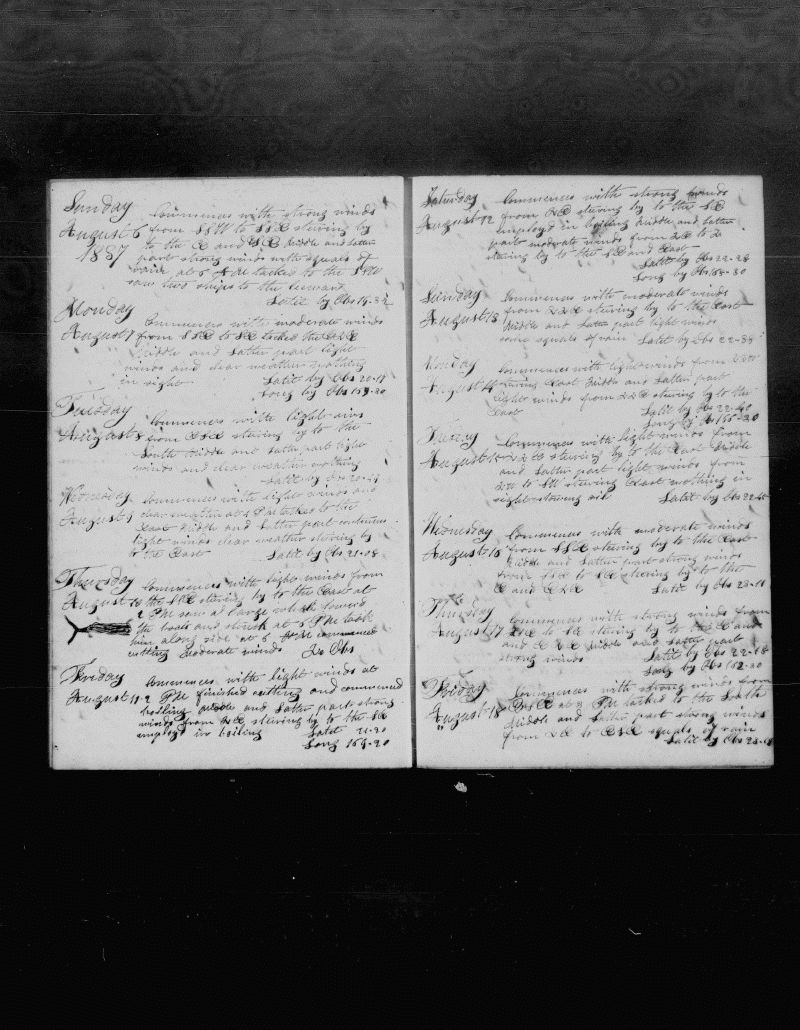 Sunday Commences with strong winds
August 6 from SSW to SSE steering by
1887 to the E and SE Middle and latter
part strong winds with squals of
rain at 6 PM tacked to the
saw two ships to the leeward
Latit by Obs 19-32
Monday Commences with moderate winds
August 7 from SSE to SE tacked
Middle and Latter part light
winds and clear weather nothing
in sight Latit by Obs 20-17
Long by Obs 159-30
Tuesday Commences with light airs
August 8 from ESE steering by to the
South Middle and Latter part light
winds and clear weather nothing
Latit by Obs
Wednesday Commences with light winds and
August 9 clear weather at PM tacked to the
East Middle and Latter part continues
light winds clear weather steering by
to the East Latit by Obs 21-08
Thursday Commences with light winds from
August 10 the SSE steering by to the East at
2 PM saw a large whale lowerd
the boats and struck at 5 PM took
him along side at 6 commenced
cutting moderate winds No Obs
Friday Commences with light winds at
August 11 2 PM finished cutting and commenced
boiling Middle and Latter part strong
winds from steering by to the SE
employd in boiling Latit 21-30
Long 159-20
Saturday Commences with strong winds
August 12 from steering by to the SE
employd in boiling Middle and Latter
part moderate winds from to
steering by to the SE and East
Latit by Obs 22-28
Long by Obs 158-30
Sunday Commences with moderate winds
August 13 from steering by to the East
Middle and Latter part light winds
some squals of rain Latit by Obs 22-39
Monday Commences with light winds from
August 14 steering East Middle and Latter part
light winds from steering by to the
East Latit by Obs 22-40
Long by Obs 155-20
Tuesday Commences with light winds from
August 15 steering by to the East Middle
and Latter part light winds from
to SW steering East nothing in
sight Latit by Obs
Wednesday Commences with moderate winds
August 16 from SSE steering by to the East
Middle and Latter part strong winds
from SSE to SE steering by to the
E and ENE Latit by Obs 23-11
Thursday Commences with strong winds from
August 17 to SE steering by to the E and
and ENE Middle and Latter part
strong winds Latit by Obs 22-18
Long by Obs 152-30
Friday Commences with strong winds from
August 18 ESE at 3 PM tacked to the South
Middle and Latter part strong winds
from to ESE squals of rain
Latit by Obs